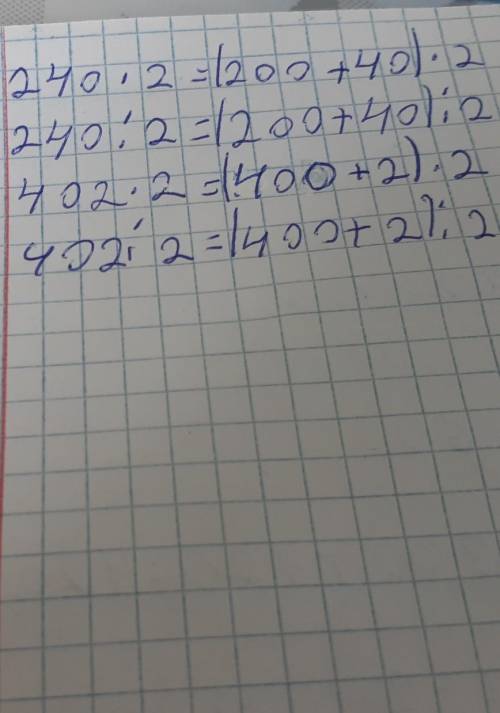 240 · 2 = (200 + 40) · 2
240 : 2 = (200 + 40) : 2
402 · 2 = (400 + 2) · 2
402 : 2 = (400 + 2) : 2